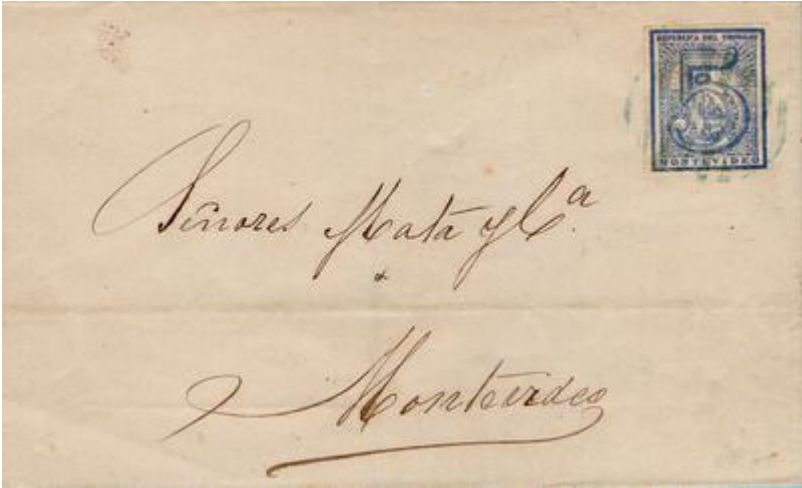 REPUBLICA DEL URUGUAY
5
MONTEVIDEO
Señores Mata y Cª
Montevideo